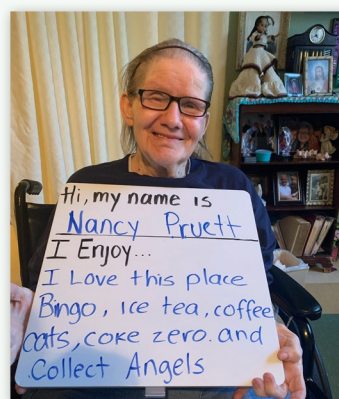 Hi, my name is
Nancy Pruett
I Enjoy...
I Love this place
Bingo, Ice tea, coffee
cats, coke zero. and
Collect Angels